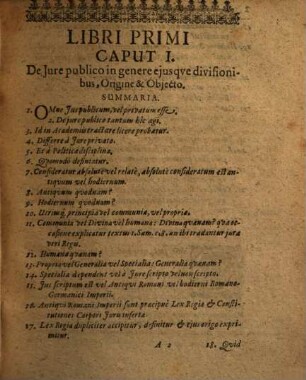 LIBRI PRIMI
CAPUT I.
De Jure publico in genere ejusqve divisioni-
bus, Origine & Objecto.
SUMMARIA.
1. OMne Jus publicum, vel privatum esse,
2. De jure publico tantum hîc agi.
3. Id in Academia tractare licere probatur.
4. Differre à Jure privato.
5. Et à Politica disciplina,
6. Qvomodò definiatur.
7. Consideratur absolutè vel relatè, absolutè consideratum est anti-
qvum vel hodiernum.
8. Antiqvum qvodnam?
9. Hodiernum qvodnam?
10. Utriusq; principia vel communia, vel propria.
11. Communia vel Divina vel humana: Divina qvænam? qva oc-
casione explicatur textus 1. Sam. c. 8. an ibi tradantur jura
veri Regis.
12. Humana qvænam?
13. Propria vel Generalia vel Specialia: Generalia qvænam?
14. Specialia dependent vel à Jure scripto vel non scripto.
15. Jus scriptum est vel Antiqvi Romani vel hodierni Romano-
Germanici Imperii.
16. Antiqvi Romani Imperii sunt præcipuè Lex Regia & Consti-
tutiones Corpori Juris insertæ
17. Lex Regia dupliciter accipitur, definitur & ejus origo expri-
matur.
A 2 18. Qvid